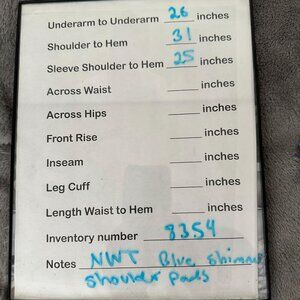 Underarm to Underarm 26 inches
Shoulder to Hem 31 inches
Sleeve Shoulder to Hem 25 inches
Across Waist ____ inches
Across Hips ____ inches
Front Rise ____ inches
Inseam ____ inches
Leg Cuff ____ inches
Length Waist to Hem ____ inches
Inventory number 8354
Notes NWT Blue Shimmer
Shoulder Pads